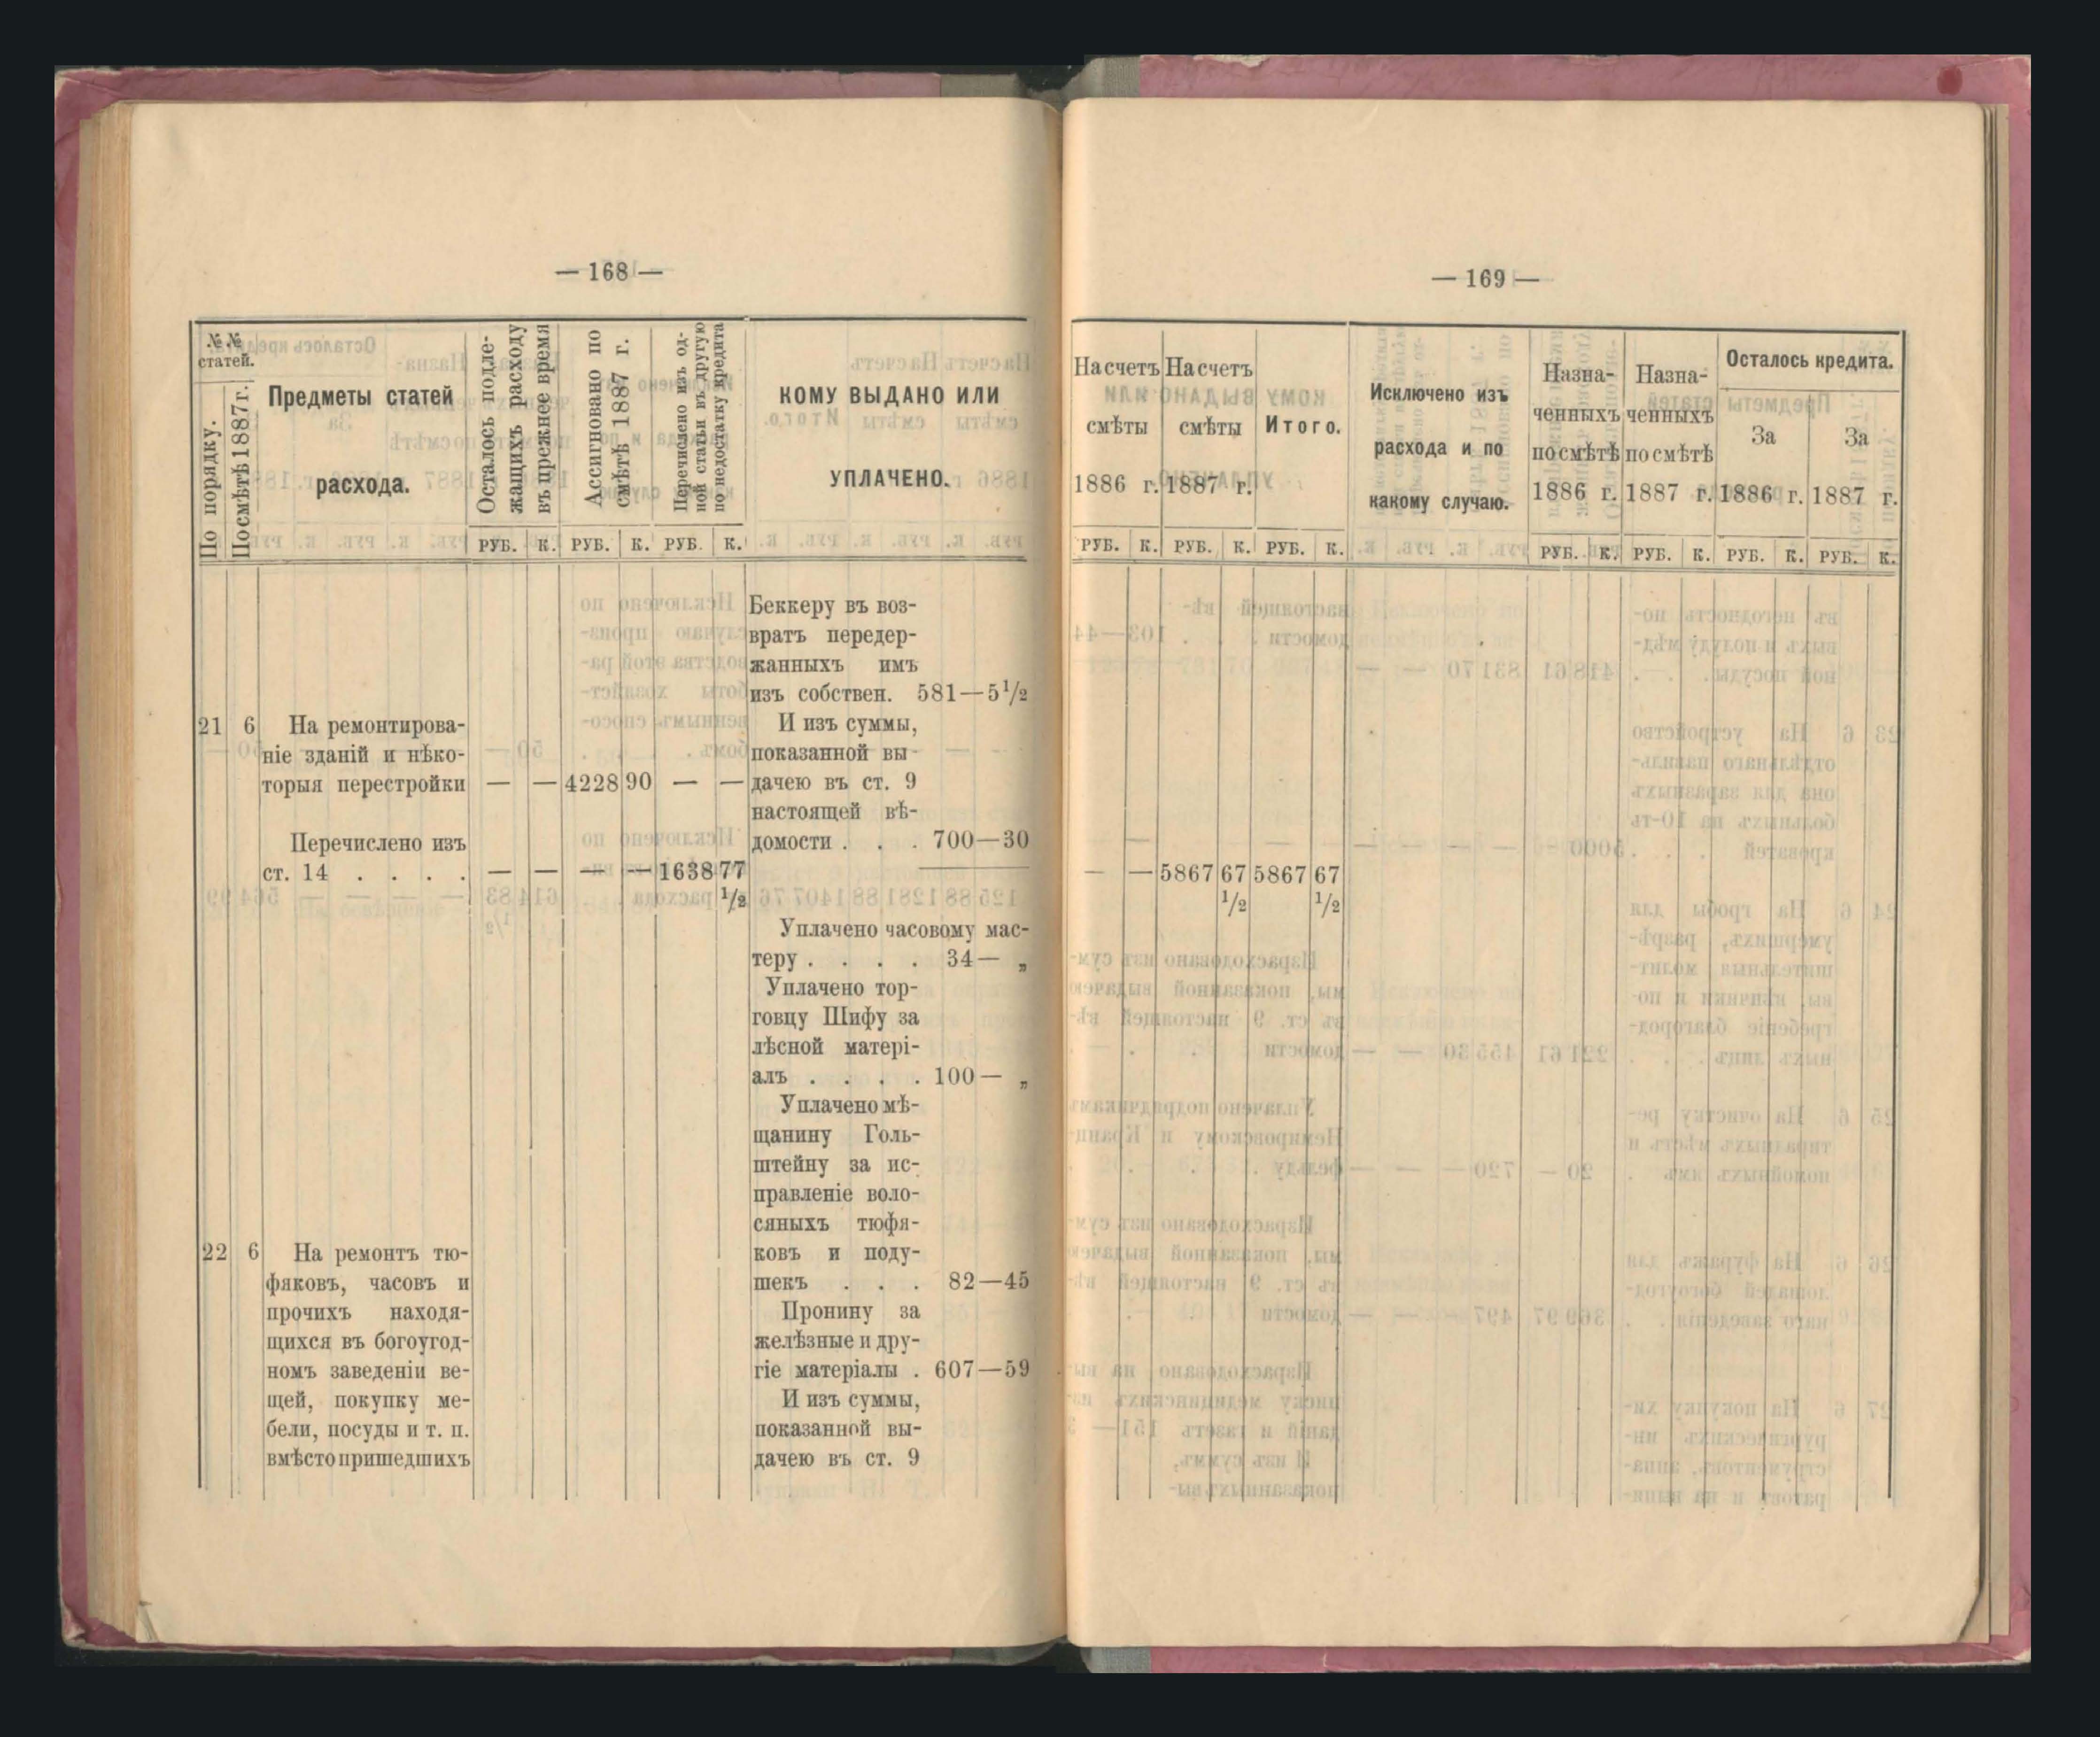 — 168 —
№№ статей.
По порядку.
По смѣтѣ 1887 г.
Предметы статей
расхода.
Осталось подле-
жащихъ расходу
въ прежнее время
РУБ. К.
Ассигновано по
смѣтѣ 1887 г.
РУБ. К.
Перечислено изъ од-
ной статьи въ другую
по недостатку кредита
РУБ. К.
КОМУ ВЫДАНО ИЛИ
УПЛАЧЕНО.
Беккеру въ воз-
вратъ передер-
жанныхъ имъ
изъ собствен. 581—5 1/2
21 6 На ремонтирова-
ніе зданій и нѣко-
торыя перестройки — — 4228 90 — —
И изъ суммы,
показанной вы-
дачею въ ст. 9
настоящей вѣ-
домости . . . 700—30
Перечислено изъ
ст. 14 . . . . — — — — 1638 77
1/2
Уплачено часовому мас-
теру . . . . 34— „
Уплачено тор-
говцу Шифу за
лѣсной матері-
алъ . . . . 100— „
Уплачено мѣ-
щанину Голь-
штейну за ис-
правленіе воло-
сяныхъ тюфя-
ковъ и поду-
шекъ . . . 82—45
Пронину за
желѣзные и дру-
гіе матеріалы . 607—59
И изъ суммы,
показанной вы-
дачею въ ст. 9
22 6 На ремонтъ тю-
фяковъ, часовъ и
прочихъ находя-
щихся въ богоугод-
номъ заведеніи ве-
щей, покупку ме-
бели, посуды и т. п.
вмѣсто пришедшихъ
— 169 —
На счетъ
смѣты
1886 г.
РУБ. К.
На счетъ
смѣты
1887 г.
РУБ. К.
Итого.
РУБ. К.
Исключено изъ
расхода и по
какому случаю.
Назна-
ченныхъ
по смѣтѣ
1886 г.
РУБ. К.
Назна-
ченныхъ
по смѣтѣ
1887 г.
РУБ. К.
Осталось кредита.
За
1886 г.
РУБ. К.
За
1887 г.
РУБ. К.
— — 5867 67 5867 67
1/2 1/2